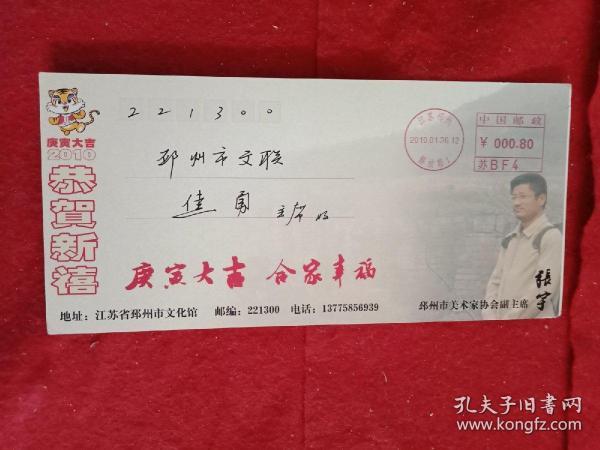 庚寅大吉
2010
恭贺新禧
221300
邳州市文联
佳勇 主席 收
庚寅大吉 合家幸福
地址：江苏省邳州市文化馆 邮编：221300 电话：13775856939
2010.01.26.12
中国邮政
¥ 000.80
苏BF4
張宇
邳州市美术家协会副主席
孔夫子旧书网
www.kongfz.com